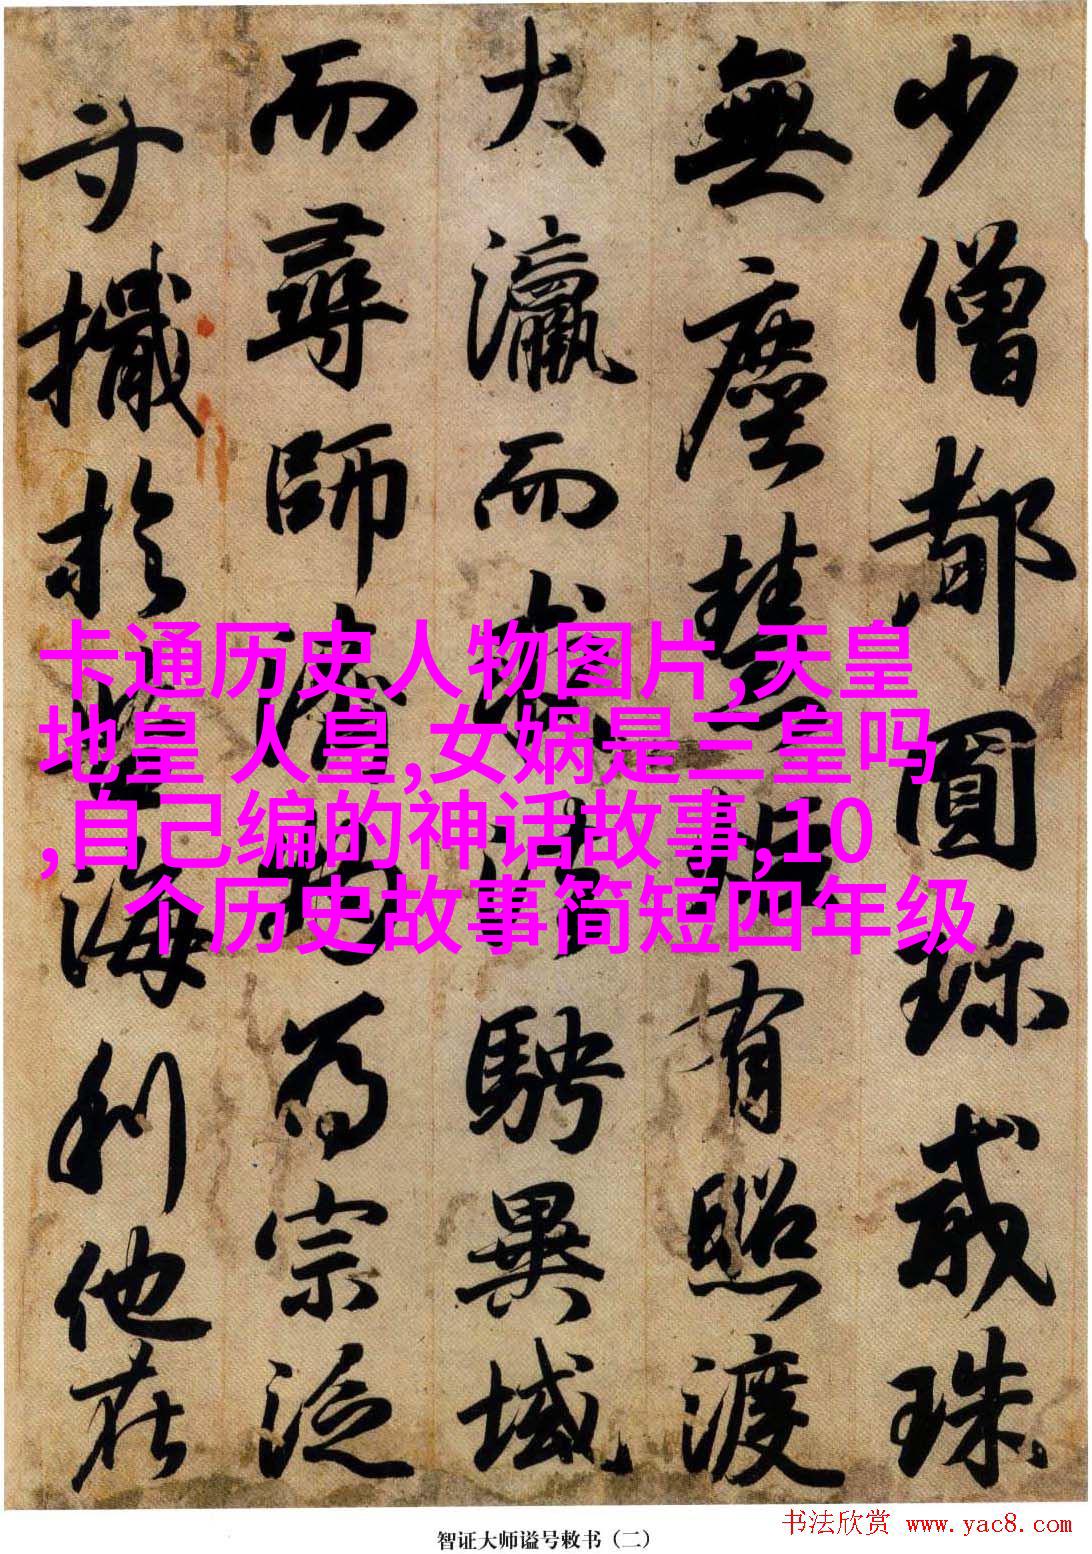 少僧都圓珍戒珠
無塵慧炬有照渡
大瀛而求法騁異域
而尋師濟物爲宗泛
寸檝於巨海利他在
卡通历史人物图片,天皇
地皇 人皇,女娲是三皇吗
,自己编的神话故事,10
个历史故事简短四年级
智证大师谥号敕书（二）
书法欣赏 www.yac8.com